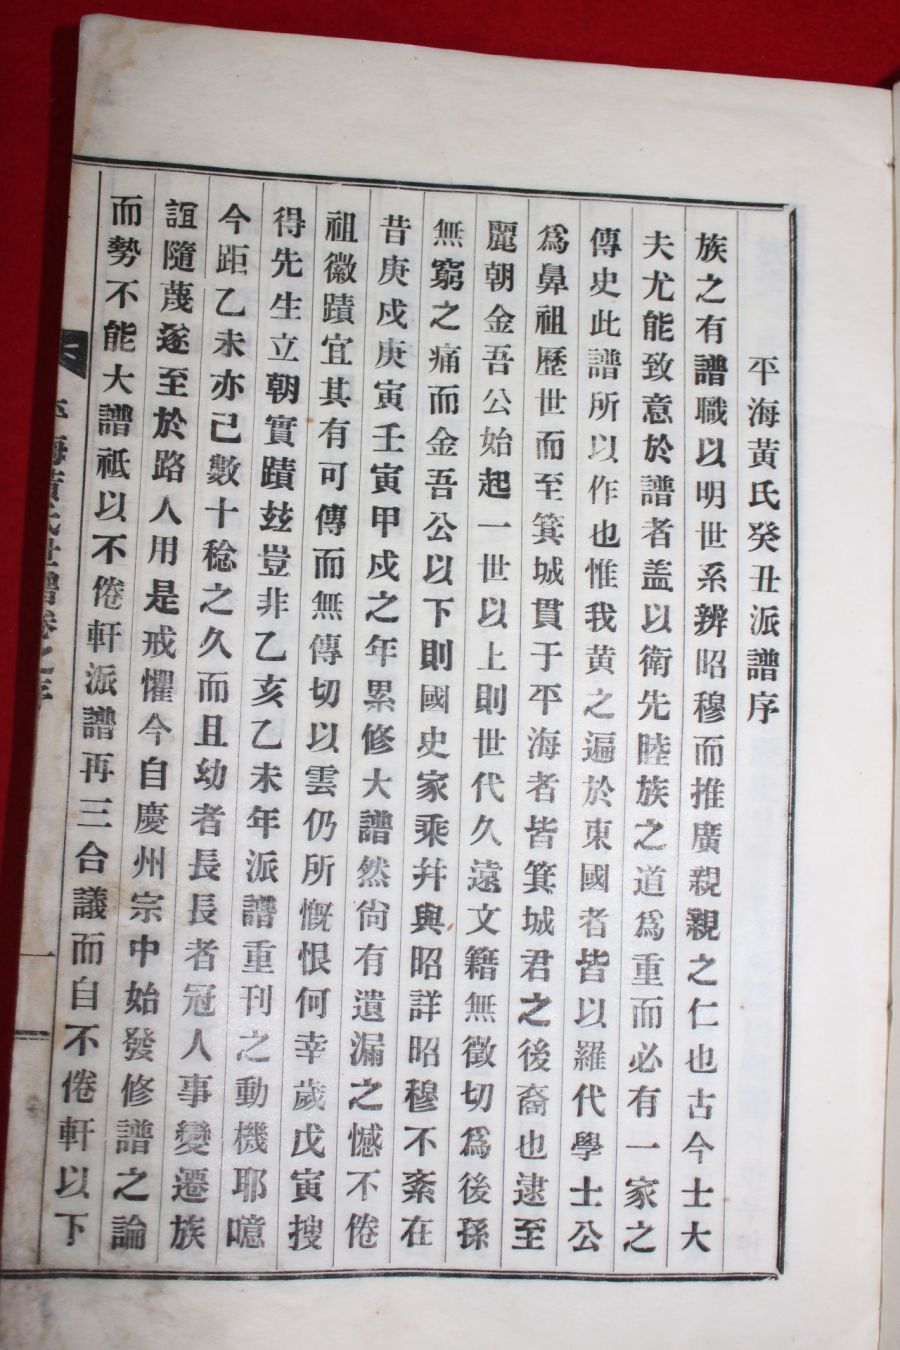 平海黃氏癸丑派譜序
族之有譜職以明世系辨昭穆而推廣親親之仁也古今士大
夫尤能致意於譜者盖以衛先睦族之道爲重而必有一家之
傳史此譜所以作也惟我黃之遍於東國者皆以羅代學士公
爲鼻祖歷世而至箕城貫于平海者皆箕城君之後裔也逮至
麗朝金吾公始起一世以上則世代久遠文籍無徵切爲後孫
無窮之痛而金吾公以下則國史家乘幷與昭詳昭穆不紊在
昔庚戌庚寅壬寅甲戌之年累修大譜然尙有遺漏之憾不倦
祖徽蹟宜其有可傳而無傳切以雲仍所慨恨何幸歲戊寅搜
得先生立朝實蹟玆豈非乙亥乙未年派譜重刊之動機耶噫
今距乙未亦已數十稔之久而且幼者長長者冠人事變遷族
誼隨蔑遂至於路人用是戒懼今自慶州宗中始發修譜之論
而勢不能大譜祗以不倦軒派譜再三合議而自不倦軒以下
平海黃氏世譜卷之序
一